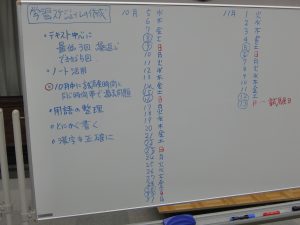 学習スケジュールの作成
・テキスト中心に
最低3回 繰返し
できれば5回
・ノート活用
10月中に試験時間と
同じ時間帯で過去問題
・用語の整理
・とにかく書く
・漢字を正確に
10月 5 水
6 木
7 金
8 土
9 日
10 月
11 火
12 水
13 木
14 金
15 土
16 日
17 月
18 火
19 水
20 木
21 金
22 土
23 日
24 月
25 火
26 水
27 木
28 金
29 土
30 日
31 月
11月 1 火
2 水
3 木
4 金
5 土
6 日
7 月
8 火
9 水
10 木
11 金
12 土
13 日 … 試験日